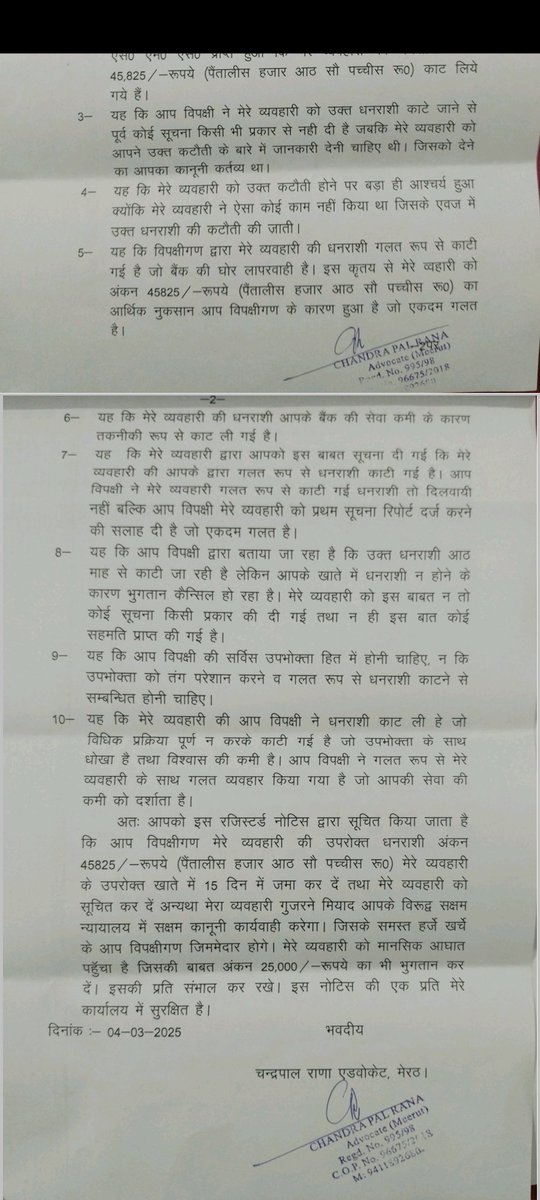 एस० एम० एस० प्राप्त हुआ कि मेरे
45,825/–रूपये (पैंतालीस हजार आठ सौ पच्चीस रू0) काट लिये
गये हैं।
3– यह कि आप विपक्षी ने मेरे व्यवहारी को उक्त धनराशी काटे जाने से
पूर्व कोई सूचना किसी भी प्रकार से नही दी है जबकि मेरे व्यवहारी को
आपने उक्त कटौती के बारे में जानकारी देनी चाहिए थी। जिसको देने
का आपका कानूनी कर्तव्य था।
4– यह कि मेरे व्यवहारी को उक्त कटौती होने पर बड़ा ही आश्चर्य हुआ
क्योंकि मेरे व्यवहारी ने ऐसा कोई काम नहीं किया था जिसके एवज में
उक्त धनराशी की कटौती की जाती।
5– यह कि विपक्षीगण द्वारा मेरे व्यवहारी की धनराशी गलत रूप से काटी
गई है जो बैंक की घोर लापरवाही है। इस कृतय से मेरे व्यहारी को
अंकन 45825/–रूपये (पैंतालीस हजार आठ सौ पच्चीस रू0) का
आर्थिक नुकसान आप विपक्षीगण के कारण हुआ है जो एकदम गलत
है।
CHANDRA PAL RANA
Advocate (Meerut)
Regd. No. 995/98
96675/2018
–2–
6– यह कि मेरे व्यवहारी की धनराशी आपके बैंक की सेवा कमी के कारण
तकनीकी रूप से काट ली गई है।
7– यह कि मेरे व्यवहारी द्वारा आपको इस बाबत सूचना दी गई कि मेरे
व्यवहारी की आपके द्वारा गलत रूप से धनराशी काटी गई है। आप
विपक्षी ने मेरे व्यवहारी गलत रूप से काटी गई धनराशी तो दिलवायी
नहीं बल्कि आप विपक्षी मेरे व्यवहारी को प्रथम सूचना रिपोर्ट दर्ज करने
की सलाह दी है जो एकदम गलत है।
8– यह कि आप विपक्षी द्वारा बताया जा रहा है कि उक्त धनराशी आठ
माह से काटी जा रही है लेकिन आपके खाते में धनराशी न होने के
कारण भुगतान कैन्सिल हो रहा है। मेरे व्यवहारी को इस बाबत न तो
कोई सूचना किसी प्रकार की दी गई तथा न ही इस बात कोई
सहमति प्राप्त की गई है।
9– यह कि आप विपक्षी की सर्विस उपभोक्ता हित में होनी चाहिए, न कि
उपभोक्ता को तंग परेशान करने व गलत रूप से धनराशी काटने से
सम्बन्धित होनी चाहिए।
10– यह कि मेरे व्यवहारी की आप विपक्षी ने धनराशी काट ली हे जो
विधिक प्रक्रिया पूर्ण न करके काटी गई है जो उपभोक्ता के साथ
धोखा है तथा विश्वास की कमी है। आप विपक्षी ने गलत रूप से मेरे
व्यवहारी के साथ गलत व्यवहार किया गया है जो आपकी सेवा की
कमी को दर्शाता है।
अतः आपको इस रजिस्टर्ड नोटिस द्वारा सूचित किया जाता है
कि आप विपक्षीगण मेरे व्यवहारी की उपरोक्त धनराशी अंकन
45825/–रूपये (पैंतालीस हजार आठ सौ पच्चीस रू0) मेरे व्यवहारी
के उपरोक्त खाते में 15 दिन में जमा कर दें तथा मेरे व्यवहारी को
सूचित कर दें अन्यथा मेरा व्यवहारी गुजरने मियाद आपके विरूद्व सक्षम
न्यायालय में सक्षम कानूनी कार्यवाही करेगा। जिसके समस्त हर्जे खर्चे
के आप विपक्षीगण जिममेदार होगे। मेरे व्यवहारी को मानसिक आघात
पहुँचा है जिसकी बाबत अंकन 25,000/–रूपये का भी भुगतान कर
दें। इसकी प्रति संभाल कर रखे। इस नोटिस की एक प्रति मेरे
कार्यालय में सुरक्षित है।
दिनांक :– 04-03-2025 भवदीय
चन्द्रपाल राणा एडवोकेट, मेरठ।
CHANDRA PAL RANA
Advocate (Meerut)
Regd. No. 995/98
C.O.P. No. 96675/2018